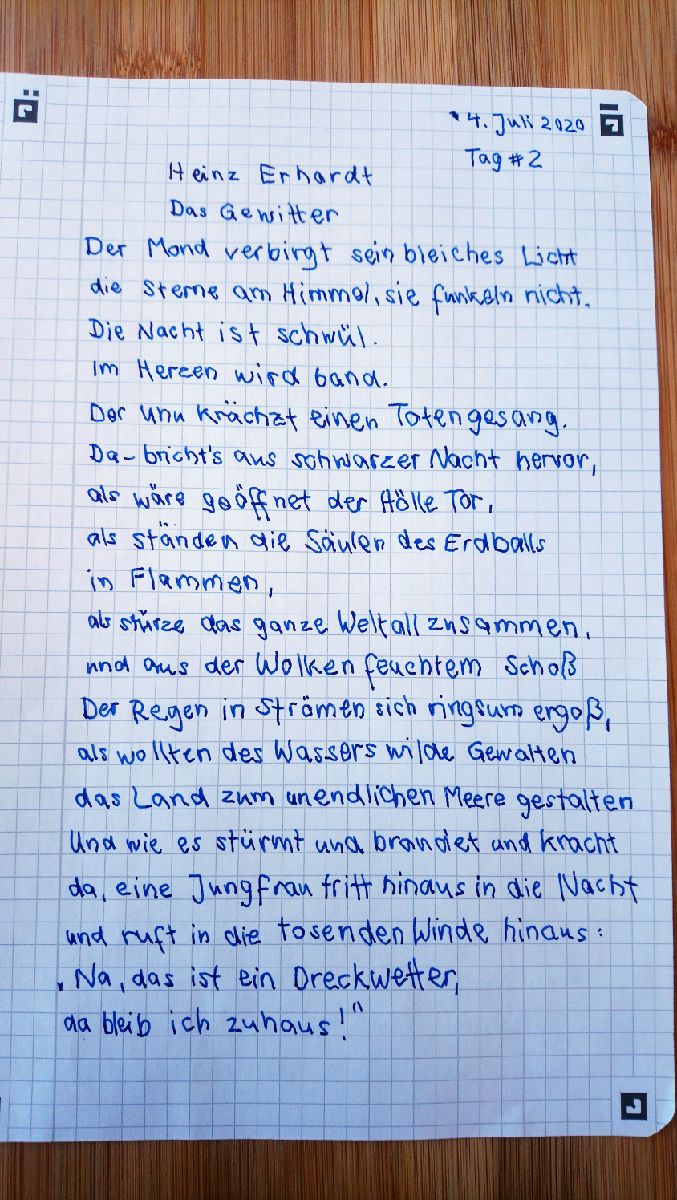 4. Juli 2020
Tag #2
Heinz Erhardt
Das Gewitter
Der Mond verbirgt sein bleiches Licht
die Sterne am Himmel, sie funkeln nicht.
Die Nacht ist schwül.
im Herzen wird band.
Der Uhu krächzt einen Totengesang.
Da-bricht's aus schwarzer Nacht hervor,
als wäre geöffnet der Hölle Tor,
als ständen die Säulen des Erdballs
in Flammen,
als stürze das ganze Weltall zusammen,
und aus der Wolken feuchtem Schoß
Der Regen in Strömen sich ringsum ergoß,
als wollten des Wassers wilde Gewalten
das Land zum unendlichen Meere gestalten
Und wie es stürmt und brandet und kracht
da, eine Jungfrau tritt hinaus in die Nacht
und ruft in die tosenden Winde hinaus:
„Na, das ist ein Dreckwetter,
da bleib ich zuhaus!"